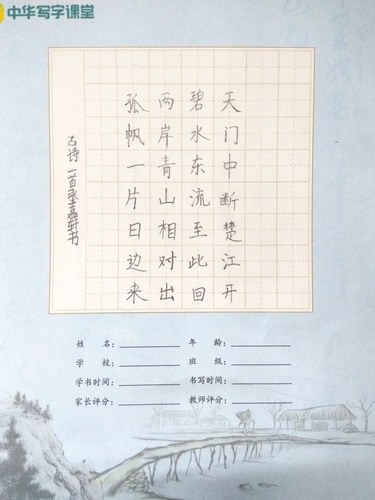 中华写字课堂
天门中断楚江开
碧水东流至此回
两岸青山相对出
孤帆一片日边来
古诗一首 书
姓 名: 年 龄:
学 校: 班 级:
学书时间: 书写时间:
家长评分: 教师评分: